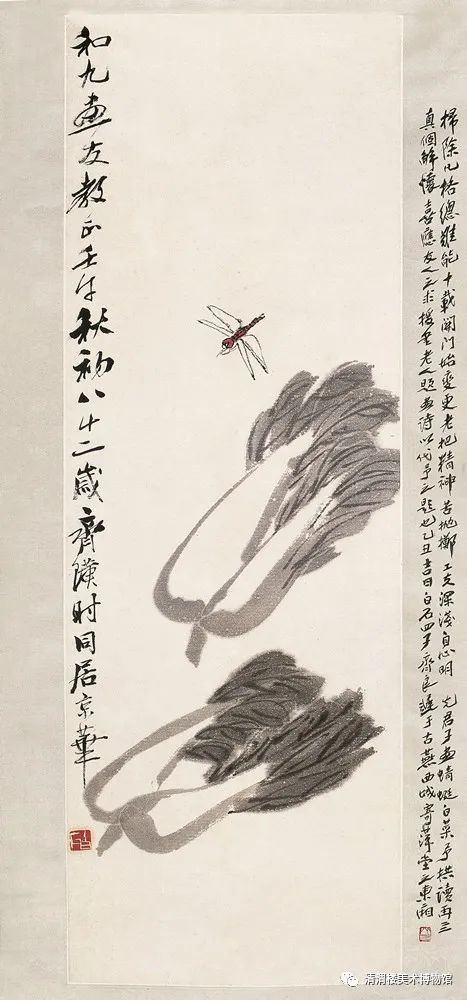 掃除凡格總難能十載關門始變更老把精神苦拋擲工夫深淺自心明 先君子畫蜻蜓白菜予拱讀再三
真個解懷喜應友人之求援老人題畫詩以代予之題也乙丑吉日白石四子齊良遲于古燕西城寄萍堂之東廂
和九畫友教正壬午秋初八十二歲齊璜时同居京華
清渭楼美术博物馆